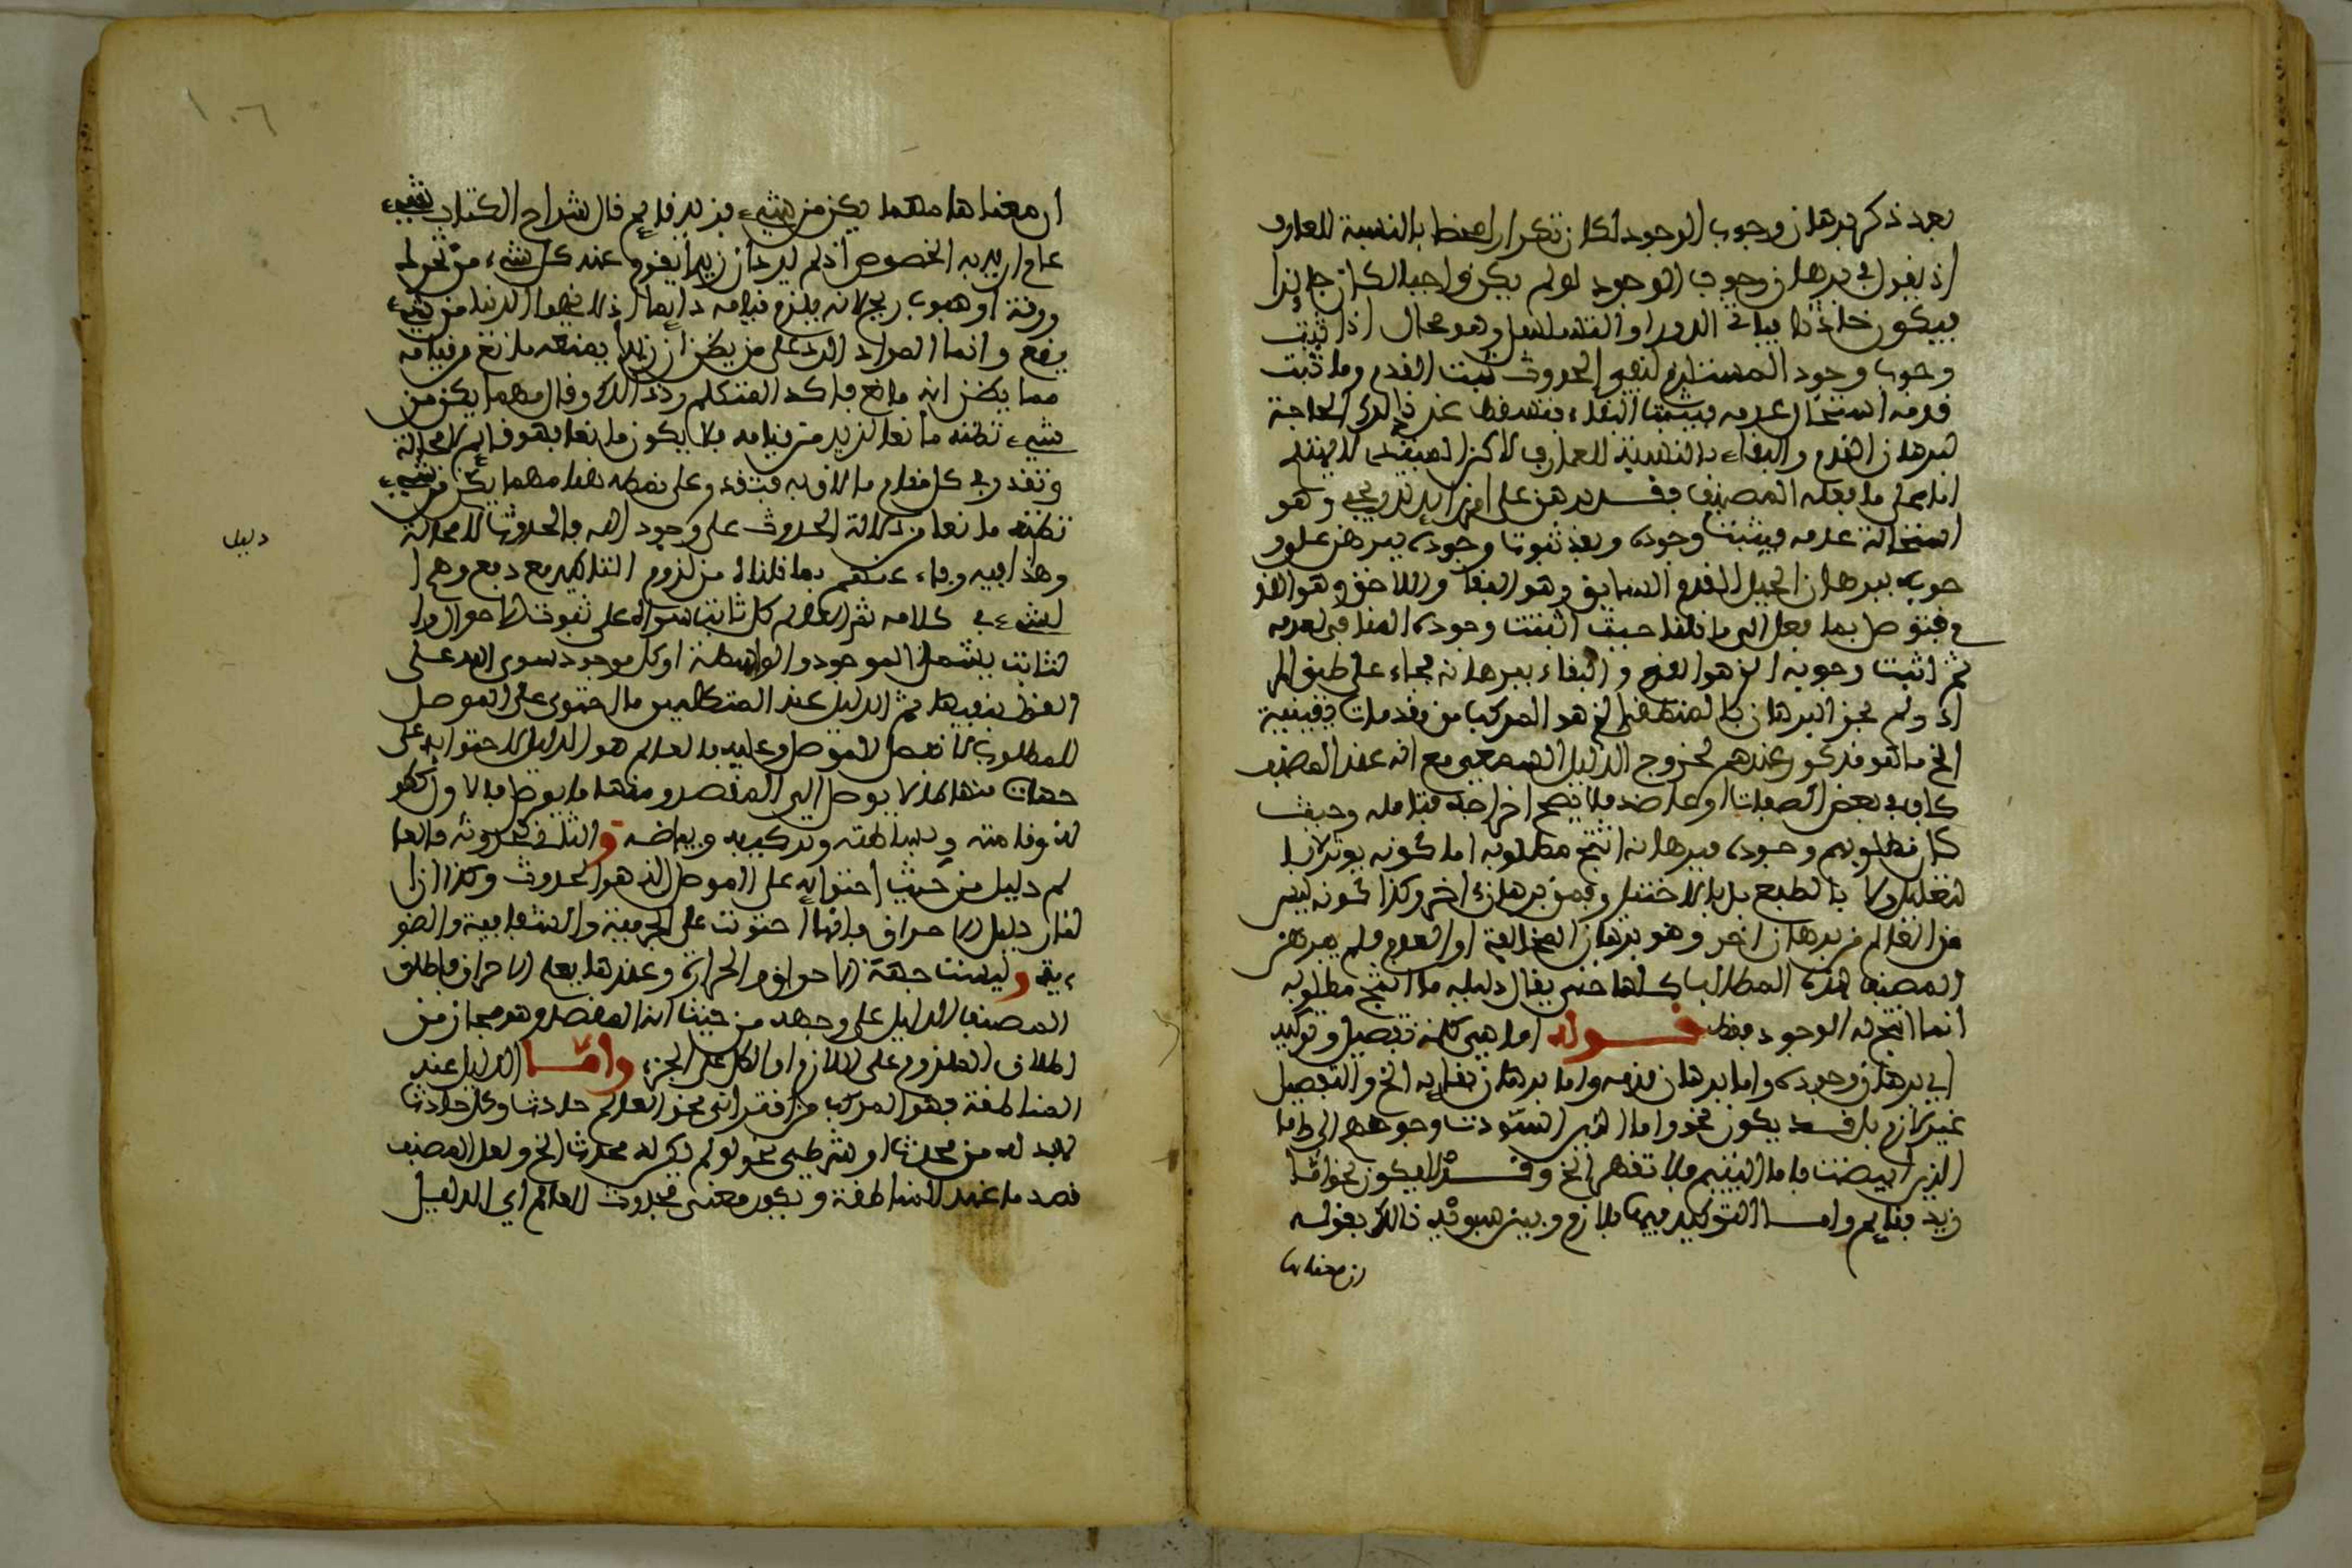 بعد ذكر برهان وجوب الوجود لكان تكرارا محضا بالنسبة للعارف
اذ يقول في برهان وجوب الوجود لو لم يكن واجبا لكان جائزا
فيكون حادثا فياتي الدور او التسلسل وهو محال اذا ثبت
وجوب وجود المستلزم لنفي الحدوث ثبت القدم وما ثبت
قدمه استحال عدمه فيثبت البقاء فتسقط عند ذالك الحاجة
لبرهان القدم والبقاء بالنسبة للعارف لاكن المبتدي لا يهتدي
اما على ما فعله المصنف فقد برهن على امر
استحالة عدمه فيثبت وجوده وبعد ثبوت وجوده يبرهن على و
جوبه ببرهان القدم السابق وهو البقاء واللاحق وهو
فتوصل بما فعل الى ما قلنا حيث اثبت وجوده المنافي لعدمه
ثم اثبت وجوبه الذي هو القدم والبقاء ببرهانه فجاء على طبق
اذ ولم يجز البرهان المنطقي الذي هو المركب من مقدمات يقينية
الخ ما هو مذكور عندهم لخروج الدليل السمعي مع انه عند المصنف
كاف في بعض الصفات او عارضه فلا يصح اخراجه فتامله وحيث
كان مطلوبهم وجوده فبرهانه انتج مطلوبه اما كونه يوثر لا با
لتعليل ولا بالطبع بل بالاختيار فمن برهان اخر وكذا كونه ليس
من العالم من برهان اخر وهو برهان المخالفة او القدم فلم يبرهن
المصنف هذه المطالب كلها حتى يقال دليله ما انتج مطلوبه
انما انتج له الوجود فقط قوله اما هي كلمة تفصيل وتوكيد
اي برهان وجوده واما برهان قدمه واما برهان بقايه الخ والتفصيل
غير لازم بل قد يكون نحو واما الذين اسودت وجوههم الى واما
الذين ابيضت فاما اليتيم فلا تقهر الخ وقد لا يكون نحو اما
زيد فقايم واما التوكيد فيها فلازم وبين سيبويه ذالك بقوله
ان معناها
ان معناها مهما يكن من شيء فزيد قايم قال شراح الكتاب شيء
عام اريد به الخصوص اذ لم يرد ان زيدا يقوم عند كل شيء من تحول
ورقة او هبوب ريح لانه يلزم قيامه دايما اذ لا تخلوا الدنيا من شيء
يقع وانما المراد الرد على من يظن ان زيدا يمنعه مانع من قيامه
مما يظن انه مانع فاكد المتكلم رد ذالك وقال مهما يكن من
شيء تظنه مانعا لزيد من قيامه فلا يكون مانعا فهو قايم لا محالة
وتقدر في كل مقام ما لاق به فتفقد وعلى نمطه هنا مهما يكن من شيء
تظنه مانعا من دلالة الحدوث على وجود الله فالحدوث لا محالة
دليل
وهذا فيه وفاء عندهم بما قلناه من لزوم التاكيد مع دفع وهم ا
لشيء في كلامه ثم العالم كل ثابت سواه على ثبوت الاحوال وا
لثابت يشمل الموجود والواسطة او كل موجود سوى الله على
القول بنفيها ثم الدليل عند المتكلمين ما احتوى على الموصل
للمطلوب لا نفس الموصل وعليه فالعالم هو الدليل لاحتوايه على
جهات منها ما لا يوصل الى المقصد ومنها ما يوصل فالاول ككو
لنوفا منه وبساطته وتركيبه وبياضه والثاني حدوثه فالعا
لم دليل من حيث احتوايه على الموصل الذي هو الحدوث وكذا ان ا
لنار دليل الاحراق فانها احتوت على الجرمية والشفافية والضو
ءية وليست جهة الاحراق الحرارة وعندها يعلم الاحراق فاطلق
المصنف الدليل على وجهه من حيث انه المقصد وهو مجاز من
اطلاق الملزوم على اللازم او الكل على الجزء واما الدليل عند
المناطقة فهو المركب من اقتراني نحو العالم حادث وكل حادث
لابد له من محدث او شرطي نحو لو لم يكن له محدث الخ ولعل المصنف
قصد ما عند المناطقة ويكون معنى فحدوث العالم اي الدليل
١٠٦